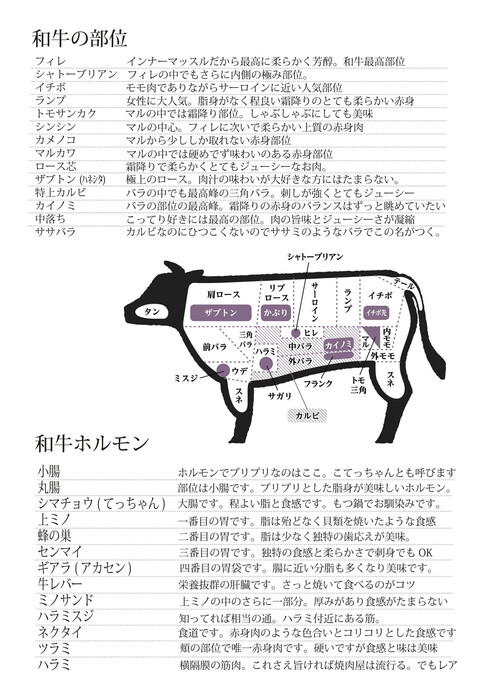 和牛の部位
フィレ インナーマッスルだから最高に柔らかく芳醇。和牛最高部位
シャトーブリアン フィレの中でもさらに内側の極み部位。
イチボ モモ肉でありながらサーロインに近い人気部位
ランプ 女性に大人気。脂身がなく程良い霜降りのとても柔らかい赤身
トモサンカク マルの中では霜降り部位。しゃぶしゃぶにしても美味
シンシン マルの中心。フィレに次いで柔らかい上質の赤身肉
カメノコ マルから少ししか取れない赤身部位
マルカワ マルの中では硬めでず味わいのある赤身部位
ロース芯 霜降りで柔らかくとてもジューシーなお肉。
ザブトン(ハネシタ) 極上のロース。肉汁の味わいが大好きな方にはたまらない。
特上カルビ バラの中でも最高峰の三角バラ。刺しが強くとてもジューシー
カイノミ バラの部位の最高峰。霜降りの赤身のバランスはずっと眺めていたい
中落ち こってり好きには最高の部位。肉の旨味とジューシーさが凝縮
ササバラ カルビなのにひつこくないのでササミのようなバラでこの名がつく。
シャトーブリアン
テール
肩ロース
リブ
ロース
サーロイン
ランプ
イチボ
タン
ザブトン
かぶり
イチボ先
三角
バラ
ヒレ
前バラ
中バラ
カイノミ
マル
内モモ
ハラミ
外バラ
外モモ
ミスジ
ウデ
スネ
サガリ
フランク
トモ
三角
スネ
カルビ
和牛ホルモン
小腸 ホルモンでプリプリなのはここ。こてっちゃんとも呼びます
丸腸 部位は小腸です。プリプリとした脂身が美味しいホルモン。
シマチョウ(てっちゃん) 大腸です。程よい脂と食感です。もつ鍋でお馴染みです。
上ミノ 一番目の胃です。脂は殆どなく貝類を焼いたような食感
蜂の巣 二番目の胃です。脂は少なく独特の歯応えが美味。
センマイ 三番目の胃です。独特の食感と柔らかさで刺身でもOK
ギアラ(アカセン) 四番目の胃袋です。腸に近い分脂も多くなり美味です。
牛レバー 栄養抜群の肝臓です。さっと焼いて食べるのがコツ
ミノサンド 上ミノの中のさらに一部分。厚みがあり食感がたまらない
ハラミスジ 知ってれば相当の通。ハラミ付近にある筋。
ネクタイ 食道です。赤身肉のような色合いとコリコリとした食感です
ツラミ 頬の部位で唯一赤身肉です。硬いですが食感と味は美味
ハラミ 横隔膜の筋肉。これさえ旨ければ焼肉屋は流行る。でもレア